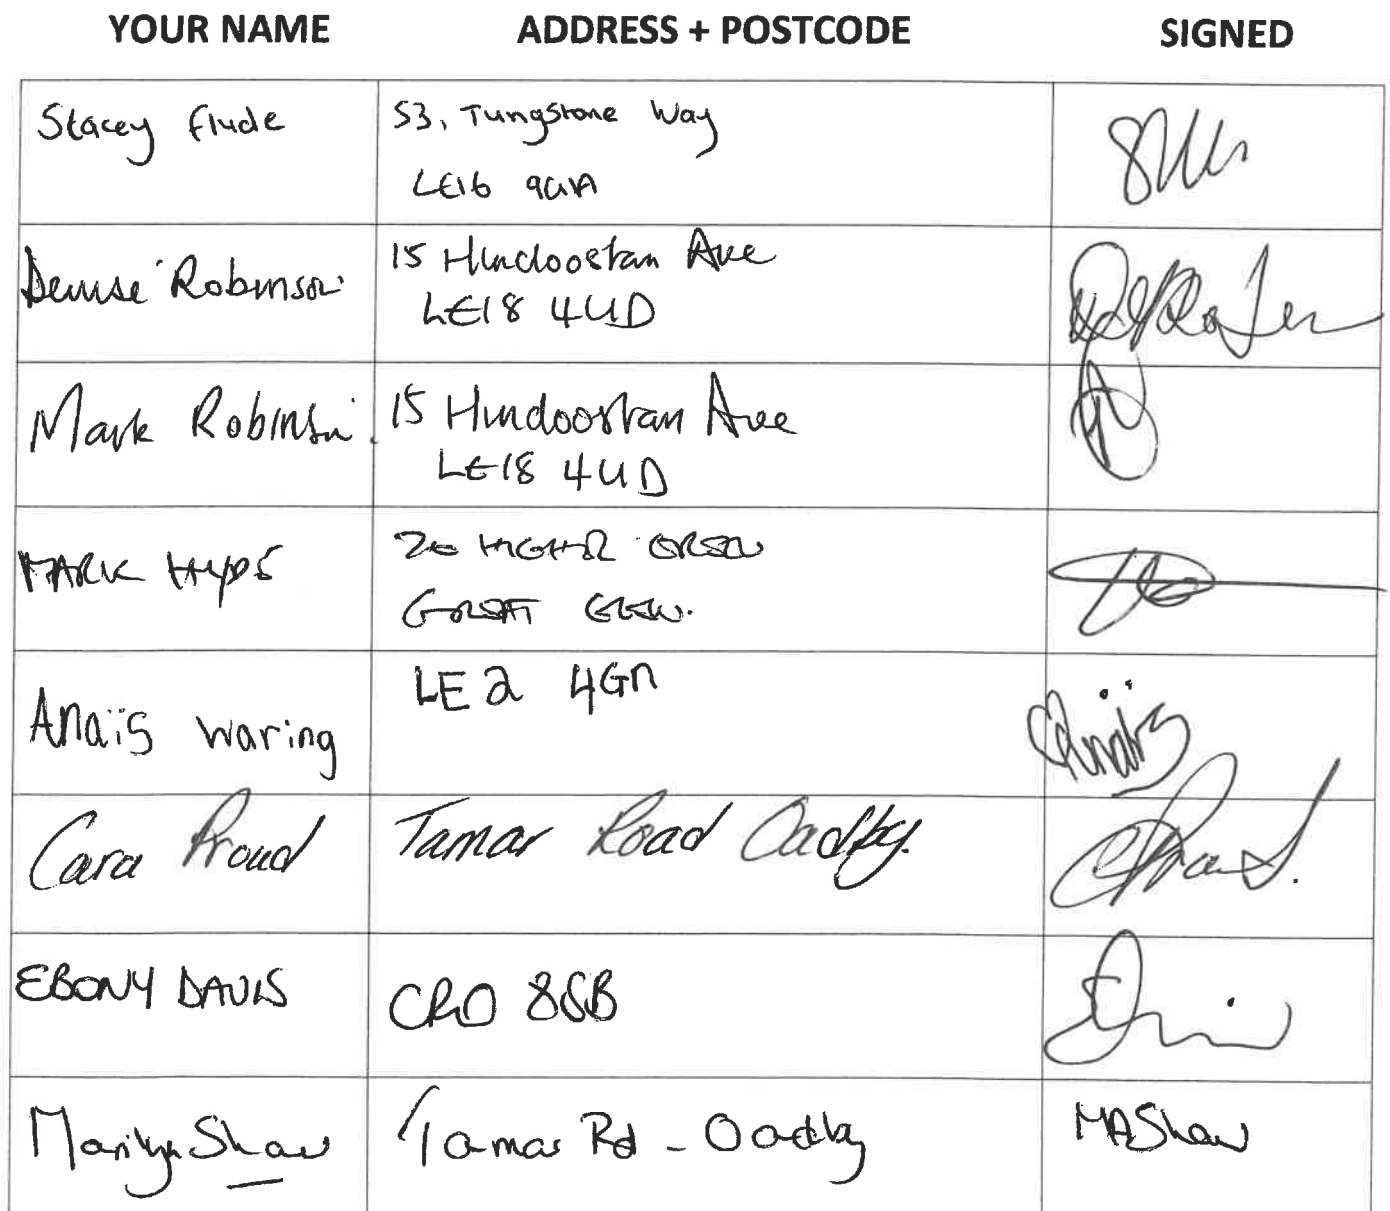 YOUR NAME ADDRESS + POSTCODE SIGNED
Stacey Flude 53, Tungstone Way
LE16 9GA
Denise Robinson 15 Hindoostan Ave
LE18 4UD
Mark Robinson 15 Hindoostan Ave
LE18 4UD
MARK HYDE 20 HIGHER GREEN
GREAT GLEN.
Anaïs Waring LE2 4GN Anaïs
Cara Proud Tamar Road Oadby.
EBONY DAVIS CR0 8SB
Marilyn Shaw Tamar Rd - Oadby MAShaw